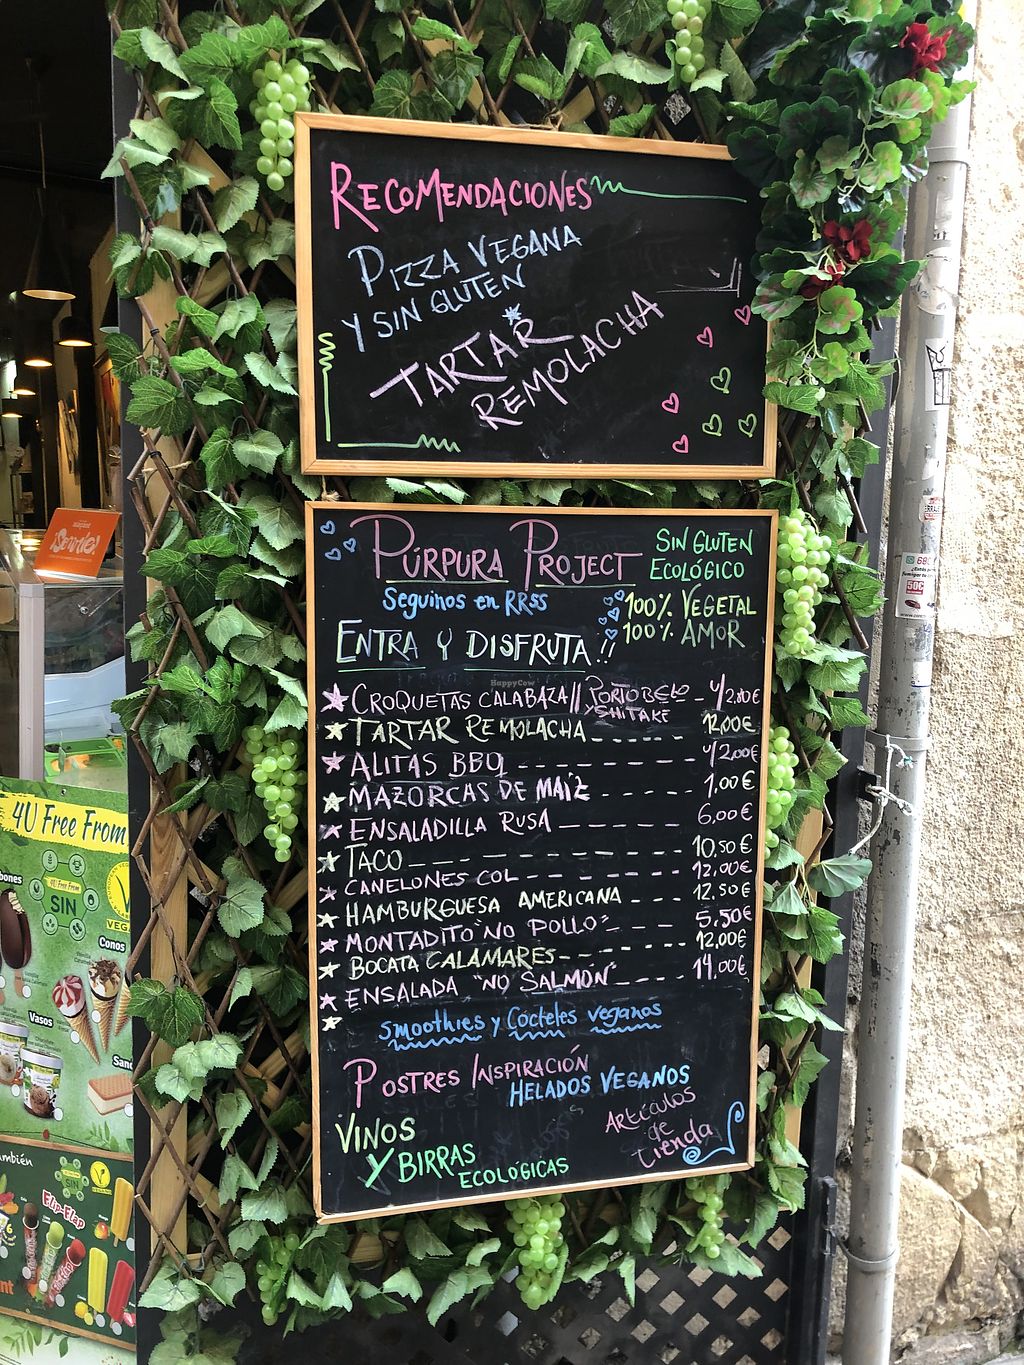 RECOMENDACIONES
PIZZA VEGANA
Y SIN GLUTEN
TARTAR
REMOLACHA
PÚRPURA PROJECT
SIN GLUTEN
ECOLÓGICO
Seguinos en RRSS
100% VEGETAL
100% AMOR
ENTRA Y DISFRUTA!!
HappyCow
CROQUETAS CALABAZA // PORTOBELO Y SHITAKE - 4/2.80€
TARTAR REMOLACHA ----- 12,00€
ALITAS BBQ -------- 4/2,00€
MAZORCAS DE MAÍZ ----- 1,00€
ENSALADILLA RUSA ----- 6,00€
TACO ----------- 10,50€
CANELONES COL ------- 12,00€
HAMBURGUESA AMERICANA --- 12,50€
MONTADITO "NO POLLO" --- 5,50€
BOCATA CALAMARES ------ 12,00€
ENSALADA "NO SALMÓN" ---- 14,00€
smoothies y Cócteles veganos
POSTRES INSPIRACIÓN
HELADOS VEGANOS
VINOS
Y BIRRAS
ECOLÓGICAS
ARTÍCULOS
de
tienda
¡Servite!
4U Free From
4U Free From
SIN
VEG
Conos
Vasos
Sand
ambién
SIN
Flip-Flap